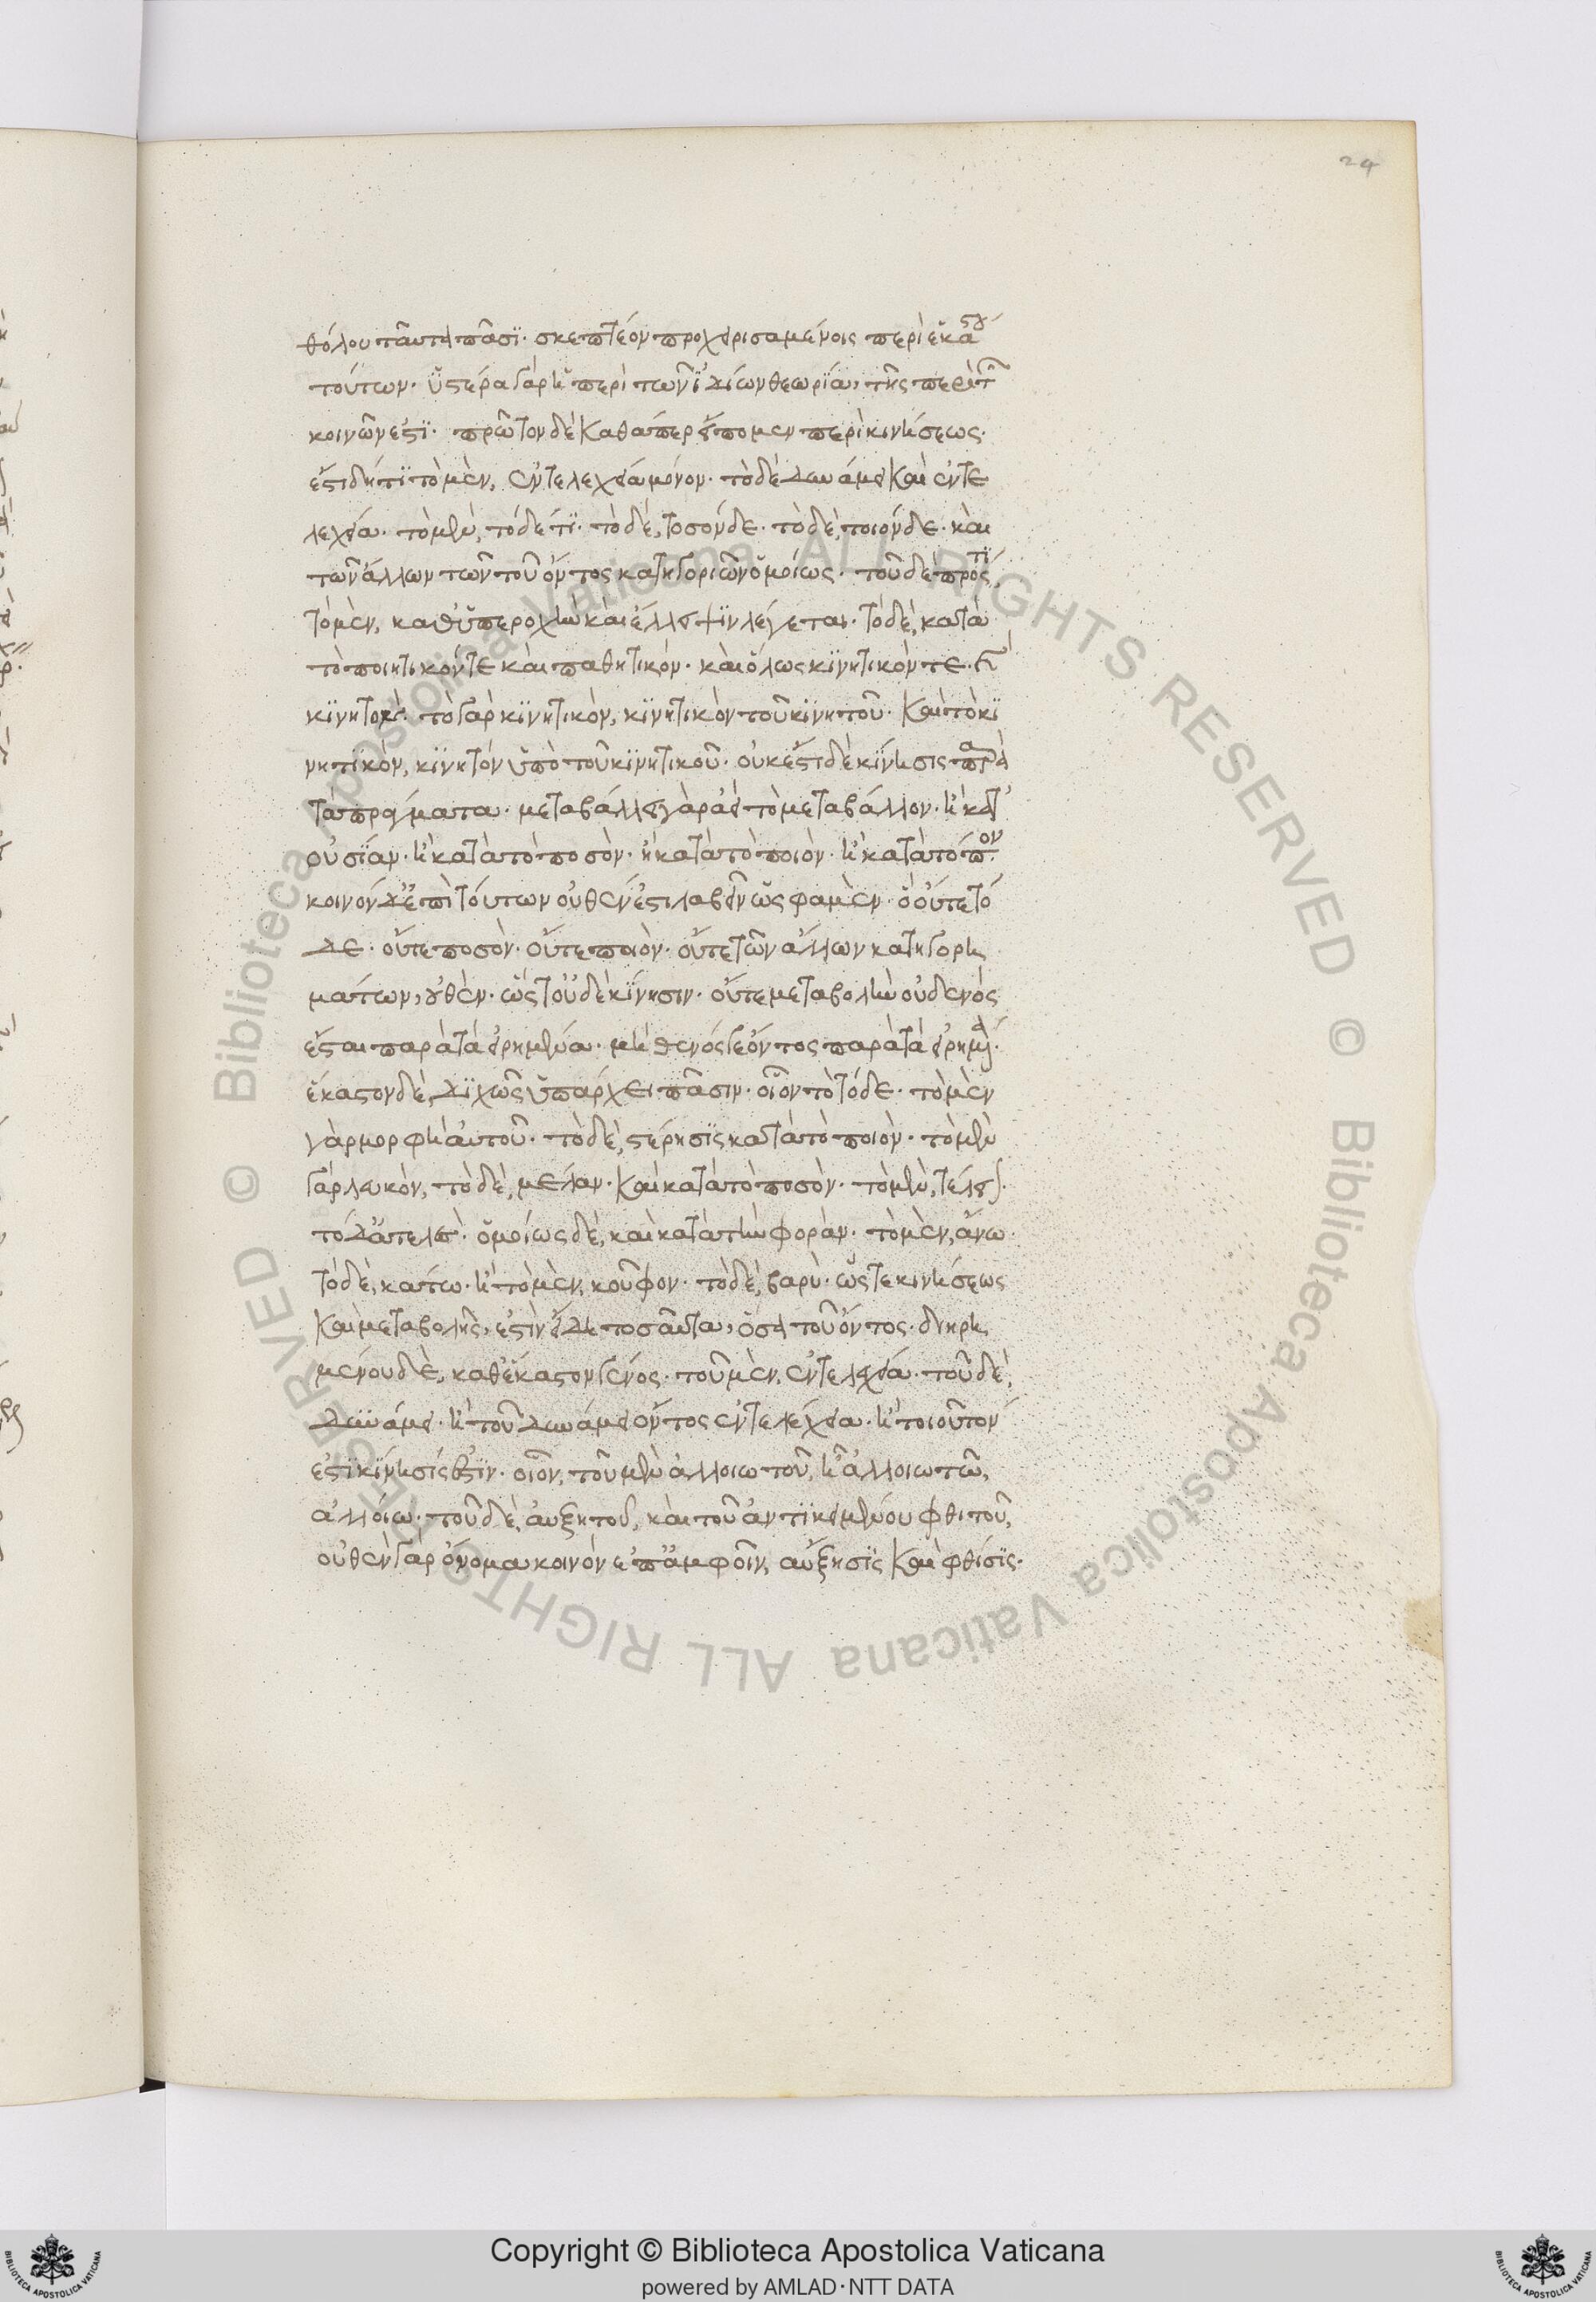 24
θόλου ταῦτα πᾶσϊ· σκεπτέον προχειρισαμένοις περὶ ἑκάστου
τούτων· ὑστέρα γὰρ ἡ περὶ τῶν ἰδίων θεωρία, τῆς περὶ τῶν
κοινῶν ἐστϊ· πρῶτον δὲ καθάπερ εἴπομεν περὶ κινήσεως·
ἔστι δή τϊ τὸ μὲν, ἐντελεχείᾳ μόνον· τὸ δὲ δυνάμει καὶ ἐντε
λεχείᾳ· τὸ μὲν, τόδε τϊ· τὸ δὲ, τοσόνδε· τὸ δὲ, ποιόνδε· καὶ
τῶν ἄλλων τῶν τοῦ ὄντος κατηγοριῶν ὁμοίως· τοῦ δὲ πρός τϊ,
τὸ μὲν, καθ' ὑπεροχὴν καὶ ἔλλειψϊν λέγεται· τὸ δὲ, κατὰ
τὸ ποιητικόν τε καὶ παθητικόν· καὶ ὅλως κϊνητικόν τε καὶ
κϊνητόν· τὸ γὰρ κϊνητικὸν, κϊνητικὸν τοῦ κϊνητοῦ· καὶ τὸ κϊ
νητϊκόν, κϊνητόν ὑπὸ τοῦ κϊνητικοῦ· οὐκ ἔστι δὲ κίνησις παρὰ
τὰ πράγματα· μεταβάλλει γὰρ ἀεὶ τὸ μεταβάλλον· ἢ κατ'
οὐσίαν· ἢ κατὰ τὸ ποσὸν· ἢ κατὰ τὸ ποιὸν· ἢ κατὰ τόπον·
κοινὸν δ' ἐπὶ τούτων οὐθέν ἐστι λαβεῖν ὥς φαμὲν· ὃ οὔτε τό
δε· οὔτε ποσὸν· οὔτε ποιὸν· οὔτε τῶν ἄλλων κατηγορη
μάτων, οὐθὲν· ὥστ' οὐδὲ κϊνησιν· οὔτε μεταβολὴν οὐδενός
ἔσται παρὰ τὰ εἰρημένα· μηθενός γε ὄντος παρὰ τὰ εἰρημένα·
ἕκαστον δὲ, δϊχῶς ὑπάρχει πᾶσιν· οἷον τὸ τόδε· τὸ μὲν
γὰρ μορφὴ αὐτοῦ· τὸ δὲ, στέρησϊς κατὰ τὸ ποιὸν· τὸ μὲν
γὰρ λευκὸν, τὸ δὲ, μέλαν· καὶ κατὰ τὸ ποσὸν· τὸ μὲν, τέλειον·
τὸ δ' ἀτελὲς· ὁμοίως δὲ, καὶ κατὰ τὴν φορὰν· τὸ μὲν, ἄνω·
τὸ δὲ, κάτω· ἢ τὸ μὲν, κοῦφον· τὸ δὲ, βαρὺ· ὥστε κινήσεως
καὶ μεταβολῆς, ἐστὶν εἴδη τοσαῦτα, ὅσα τοῦ ὄντος· διῃρη
μένου δὲ, καθ' ἕκαστον γένος· τοῦ μὲν, ἐντελεχείᾳ· τοῦ δὲ,
δυνάμει· ἡ τοῦ δυνάμει ὄντος ἐντελέχεια· ᾗ τοιοῦτόν
ἐστϊ κϊνησίς ἐστϊν· οἷον, τοῦ μὲν ἀλλοιωτοῦ, ᾗ ἀλλοιωτὸν,
ἀλλοίω· τοῦ δὲ, αὐξητοῦ, καὶ τοῦ ἀντϊκειμένου φθιτοῦ,
οὐθὲν γὰρ ὄνομα κοινὸν ἐπ' ἀμφοῖν, αὔξησϊς καὶ φθίσϊς·
Copyright © Biblioteca Apostolica Vaticana
powered by AMLAD·NTT DATA